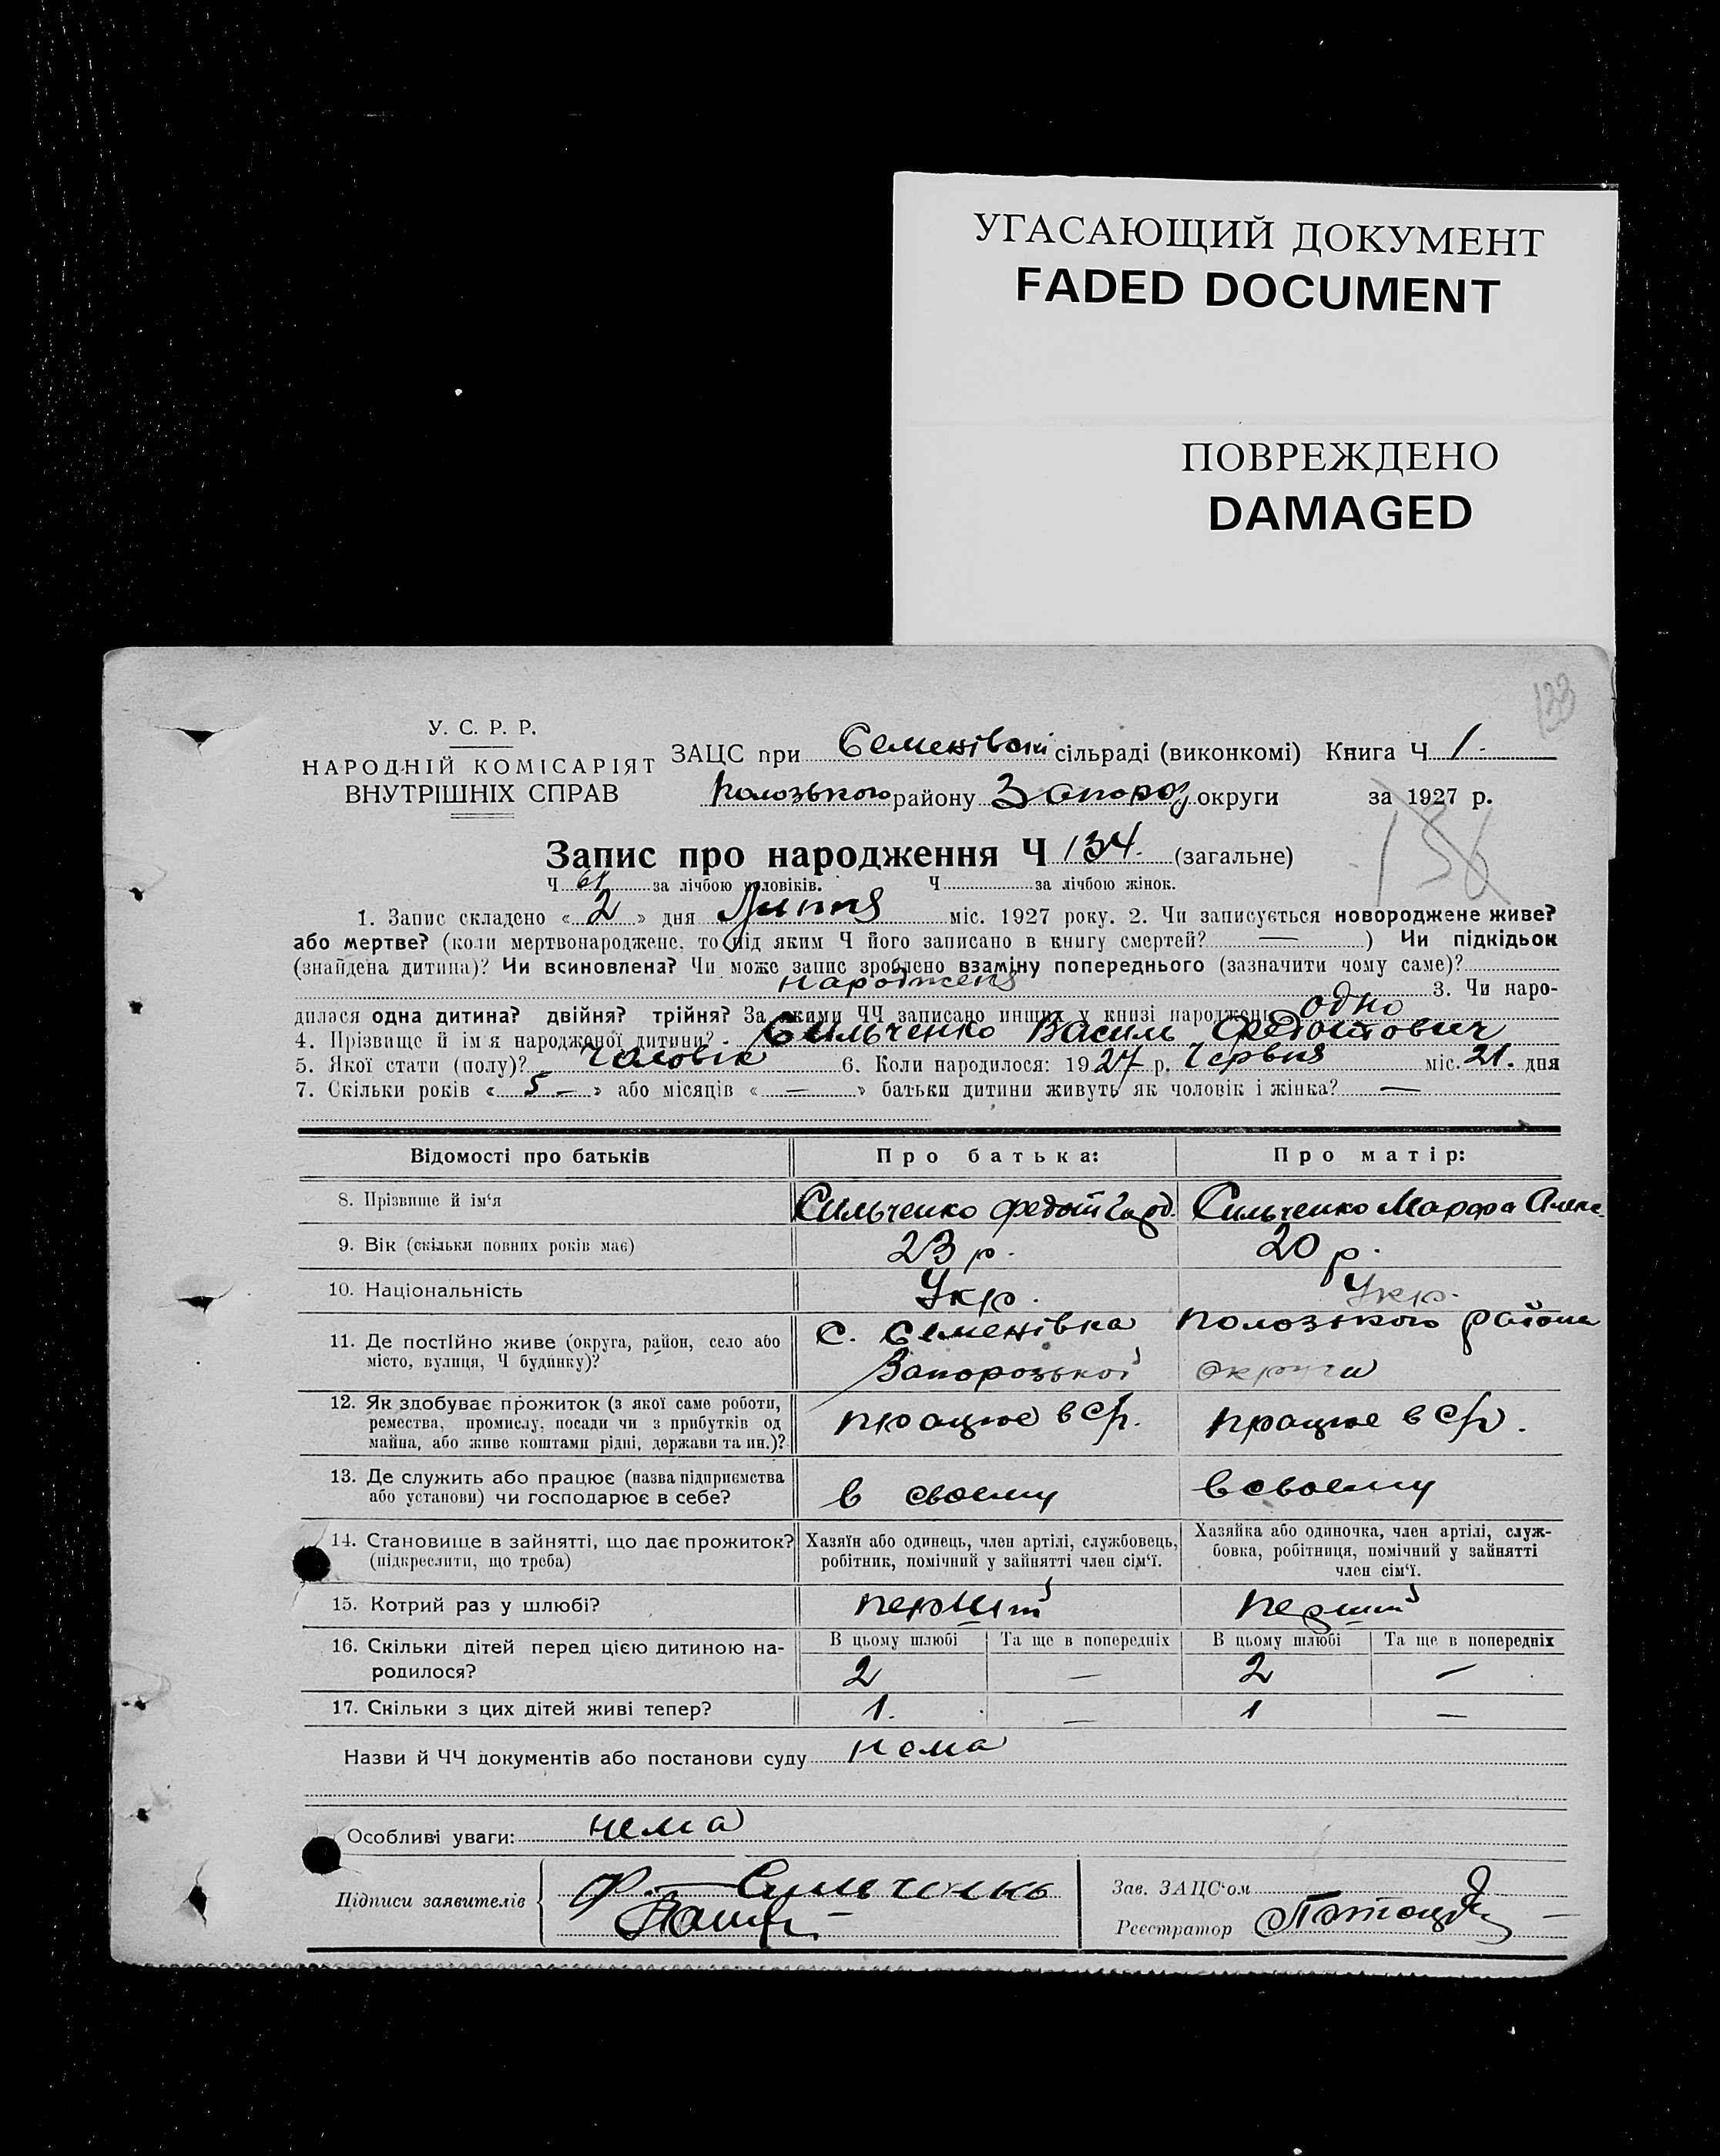 УГАСАЮЩИЙ ДОКУМЕНТ
FADED DOCUMENT
ПОВРЕЖДЕНО
DAMAGED
133
У. С. Р. Р.
НАРОДНІЙ КОМІСАРІЯТ
ВНУТРІШНІХ СПРАВ
ЗАЦС при Семенівські сільраді (виконкомі) Книга Ч 1.
Полозького району Запороз округи за 1927 р.
136
Запис про народження Ч 134. (загальне)
Ч 61 за лічбою чоловіків. Ч за лічбою жінок.
1. Запис складено « 2 » дня Липня міс. 1927 року. 2. Чи записується новороджене живе?
або мертве? (коли мертвонароджене, то під яким Ч його записано в книгу смертей? — ) Чи підкідьок
(знайдена дитина)? Чи всиновлена? Чи може запис зроблено взаміну попереднього (зазначити чому саме)?
народженя 3. Чи наро-
дилася одна дитина? двійня? трійня? За якими ЧЧ записано инших у книзі народжень одно
4. Прізвище й ім'я народженої дитини? Сильченко Василь Федотович
5. Якої стати (полу)? Чаловік 6. Коли народилося: 1927 р. Червня міс. 21. дня
7. Скільки років « 5 — » або місяців « — » батьки дитини живуть як чоловік і жінка? —
Відомості про батьків Про батька: Про матір:
8. Прізвище й ім'я Сильченко Федот Сильченко Марфа Алекс.
9. Вік (скільки повних років має) 23 р. 20 р.
10. Національність Укр. Укр.
11. Де постійно живе (округа, район, село або С. Семенівка Полозького района
місто, вулиця, Ч будинку)? Запорозької округи
12. Як здобуває прожиток (з якої саме роботи,
ремества, промислу, посади чи з прибутків од працює в с/г. працює в с/г.
майна, або живе коштами рідні, держави та ин.)?
13. Де служить або працює (назва підприємства
або установи) чи господарює в себе? в своему в своему
14. Становище в зайнятті, що дає прожиток? Хазяїн або одинець, член артілі, службовець, Хазяйка або одиночка, член артілі, служ-
(підкреслити, що треба) робітник, помічний у зайнятті член сім'ї. бовка, робітниця, помічний у зайнятті
член сім'ї.
15. Котрий раз у шлюбі? перший перший
16. Скільки дітей перед цією дитиною на- В цьому шлюбі Та ще в попередніх В цьому шлюбі Та ще в попередніх
родилося? 2 — 2 —
17. Скільки з цих дітей живі тепер? 1. — 1 —
Назви й ЧЧ документів або постанови суду нема
Особливі уваги: нема
Підписи заявителів Ф. Сильченко
Зав. ЗАЦС'ом
Реєстратор